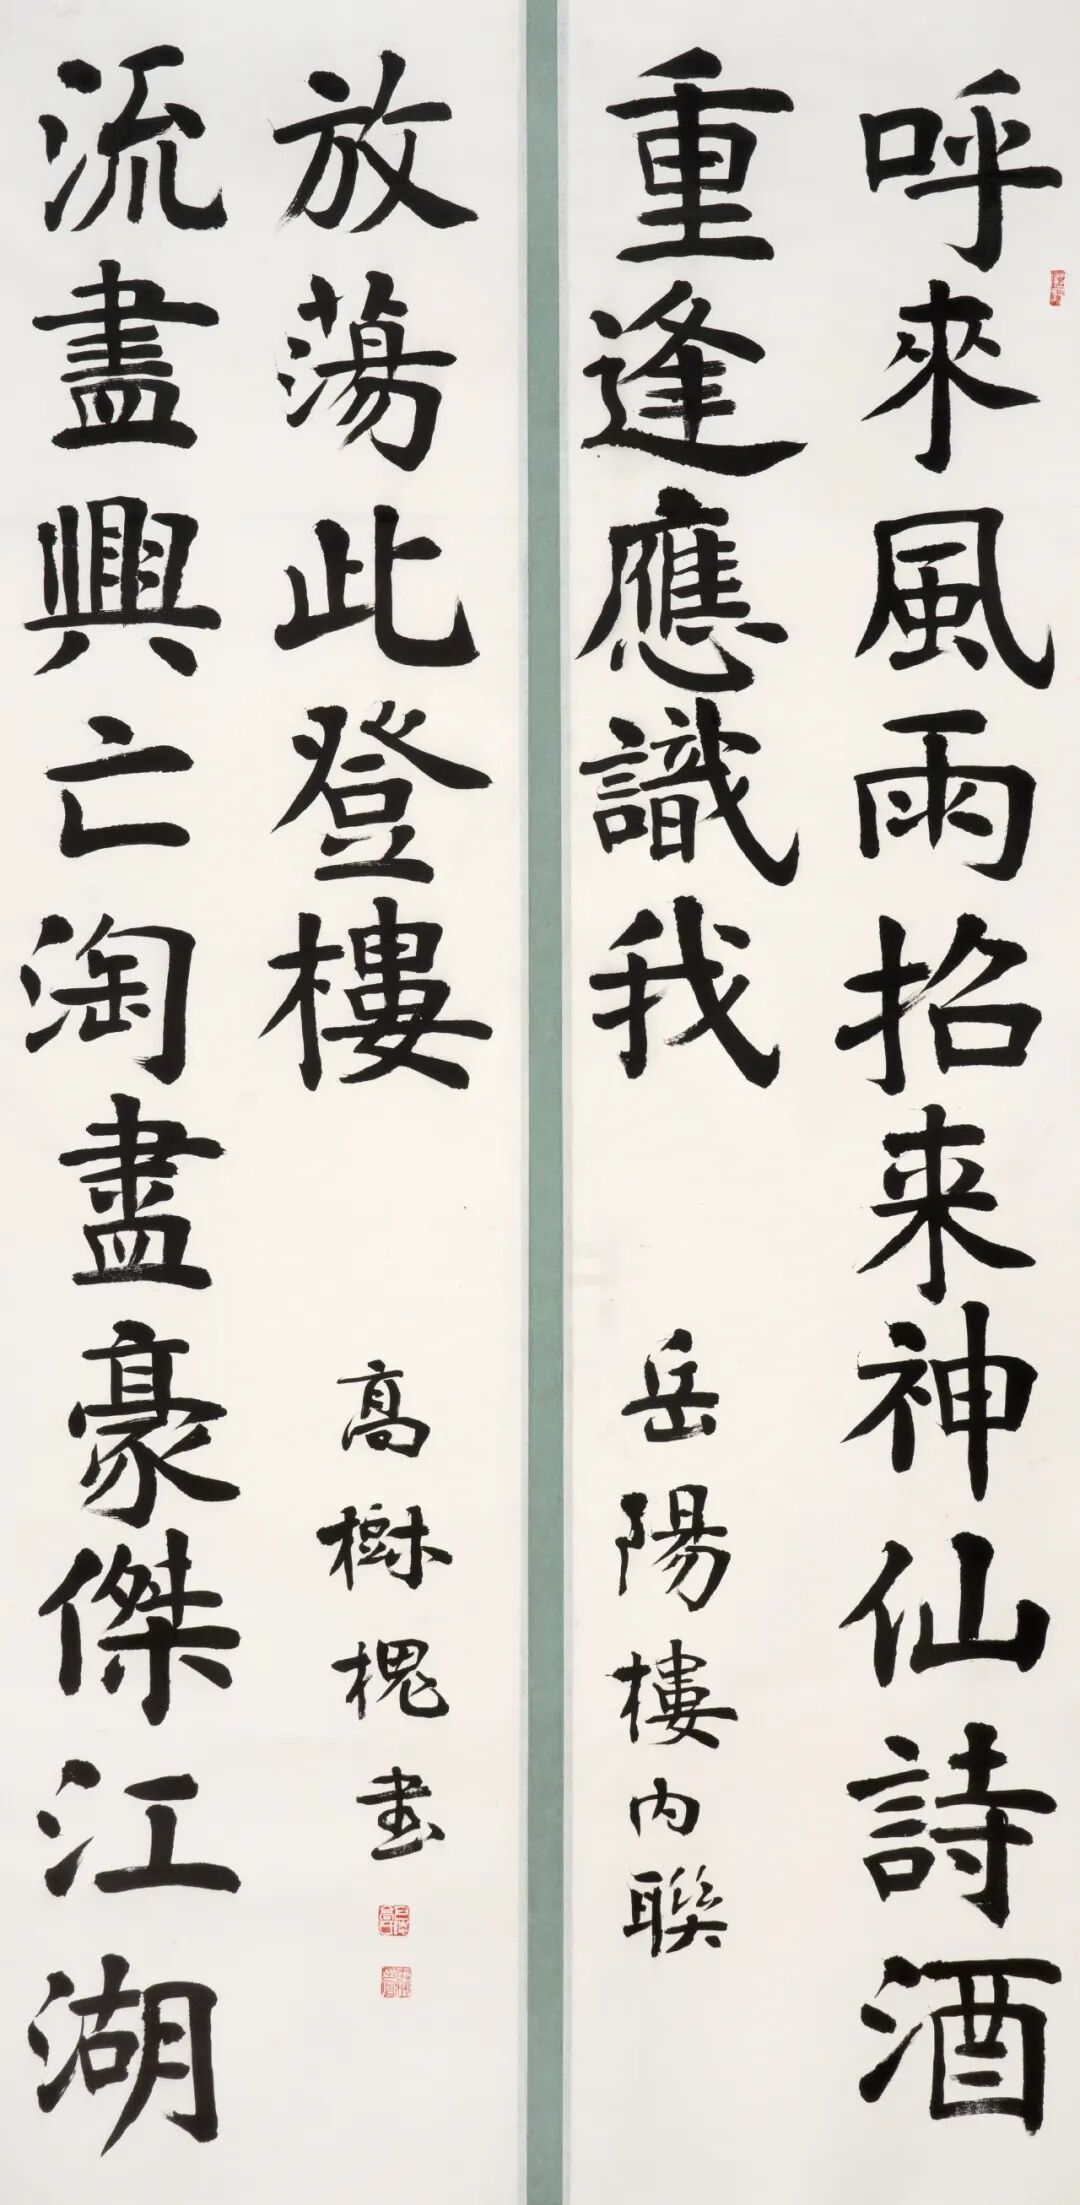 呼來風雨招来神仙詩酒
重逢應識我
岳陽樓内聯
流盡興亡淘盡豪傑江湖
放蕩此登樓
高樹槐書